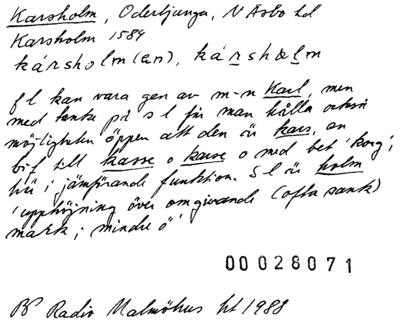 Karsholm, Oderljunga, N Åsbo hd
Karsholm 1584
kárshol̥m(en), kárshæl̥m
f l kan vara gen av m-n Karl, men
med tanke på s l får man hålla också
möjligheten öppen att den är kars, en
bif till kasse o karse o med bet 'korg',
här i jämförande funktion. S l är holm
'upphöjning över omgivande (ofta sank)
mark; mindre ö'
00028071
BP Radio Malmöhus ht 1988